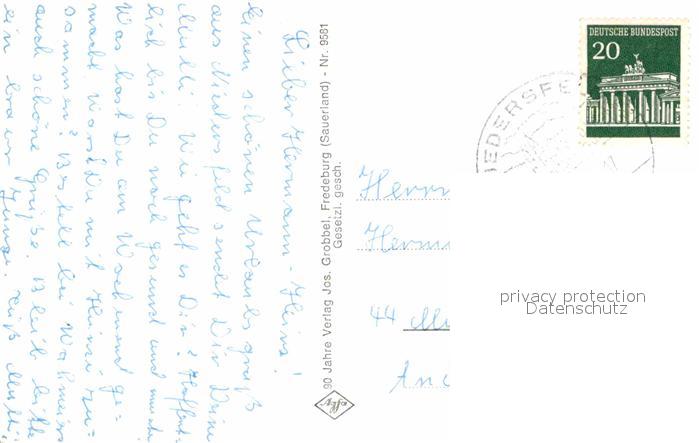 Lieber Hermann-Heinz!
Einen schönen Urlaubsgruß
aus Niedersfeld sendet Dir Deine
Mutti. Wie geht es Dir? Hoffent-
lich bis Du noch gesund und
Was hast Du am Wochenend ge-
macht? Warst Du mit Heinzi zu-
sammen? Bestell bei
auch schöne Grüße. Bleib bitte
ein braver Junge. Mutti.
90 Jahre Verlag Jos. Grobbel, Fredeburg (Sauerland) - Nr. 9581
Gesetzl. gesch.
DEUTSCHE BUNDESPOST
20
Herrn
44
privacy protection
Datenschutz